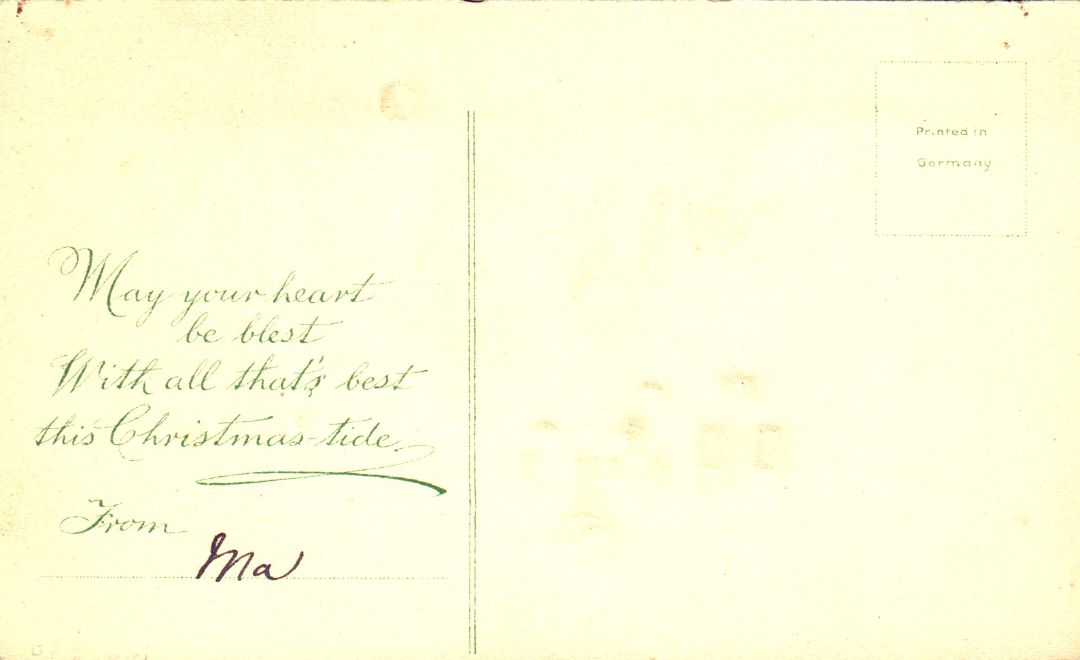 Printed in
Germany
May your heart
be blest
With all that's best
this Christmas-tide.
From
Ma